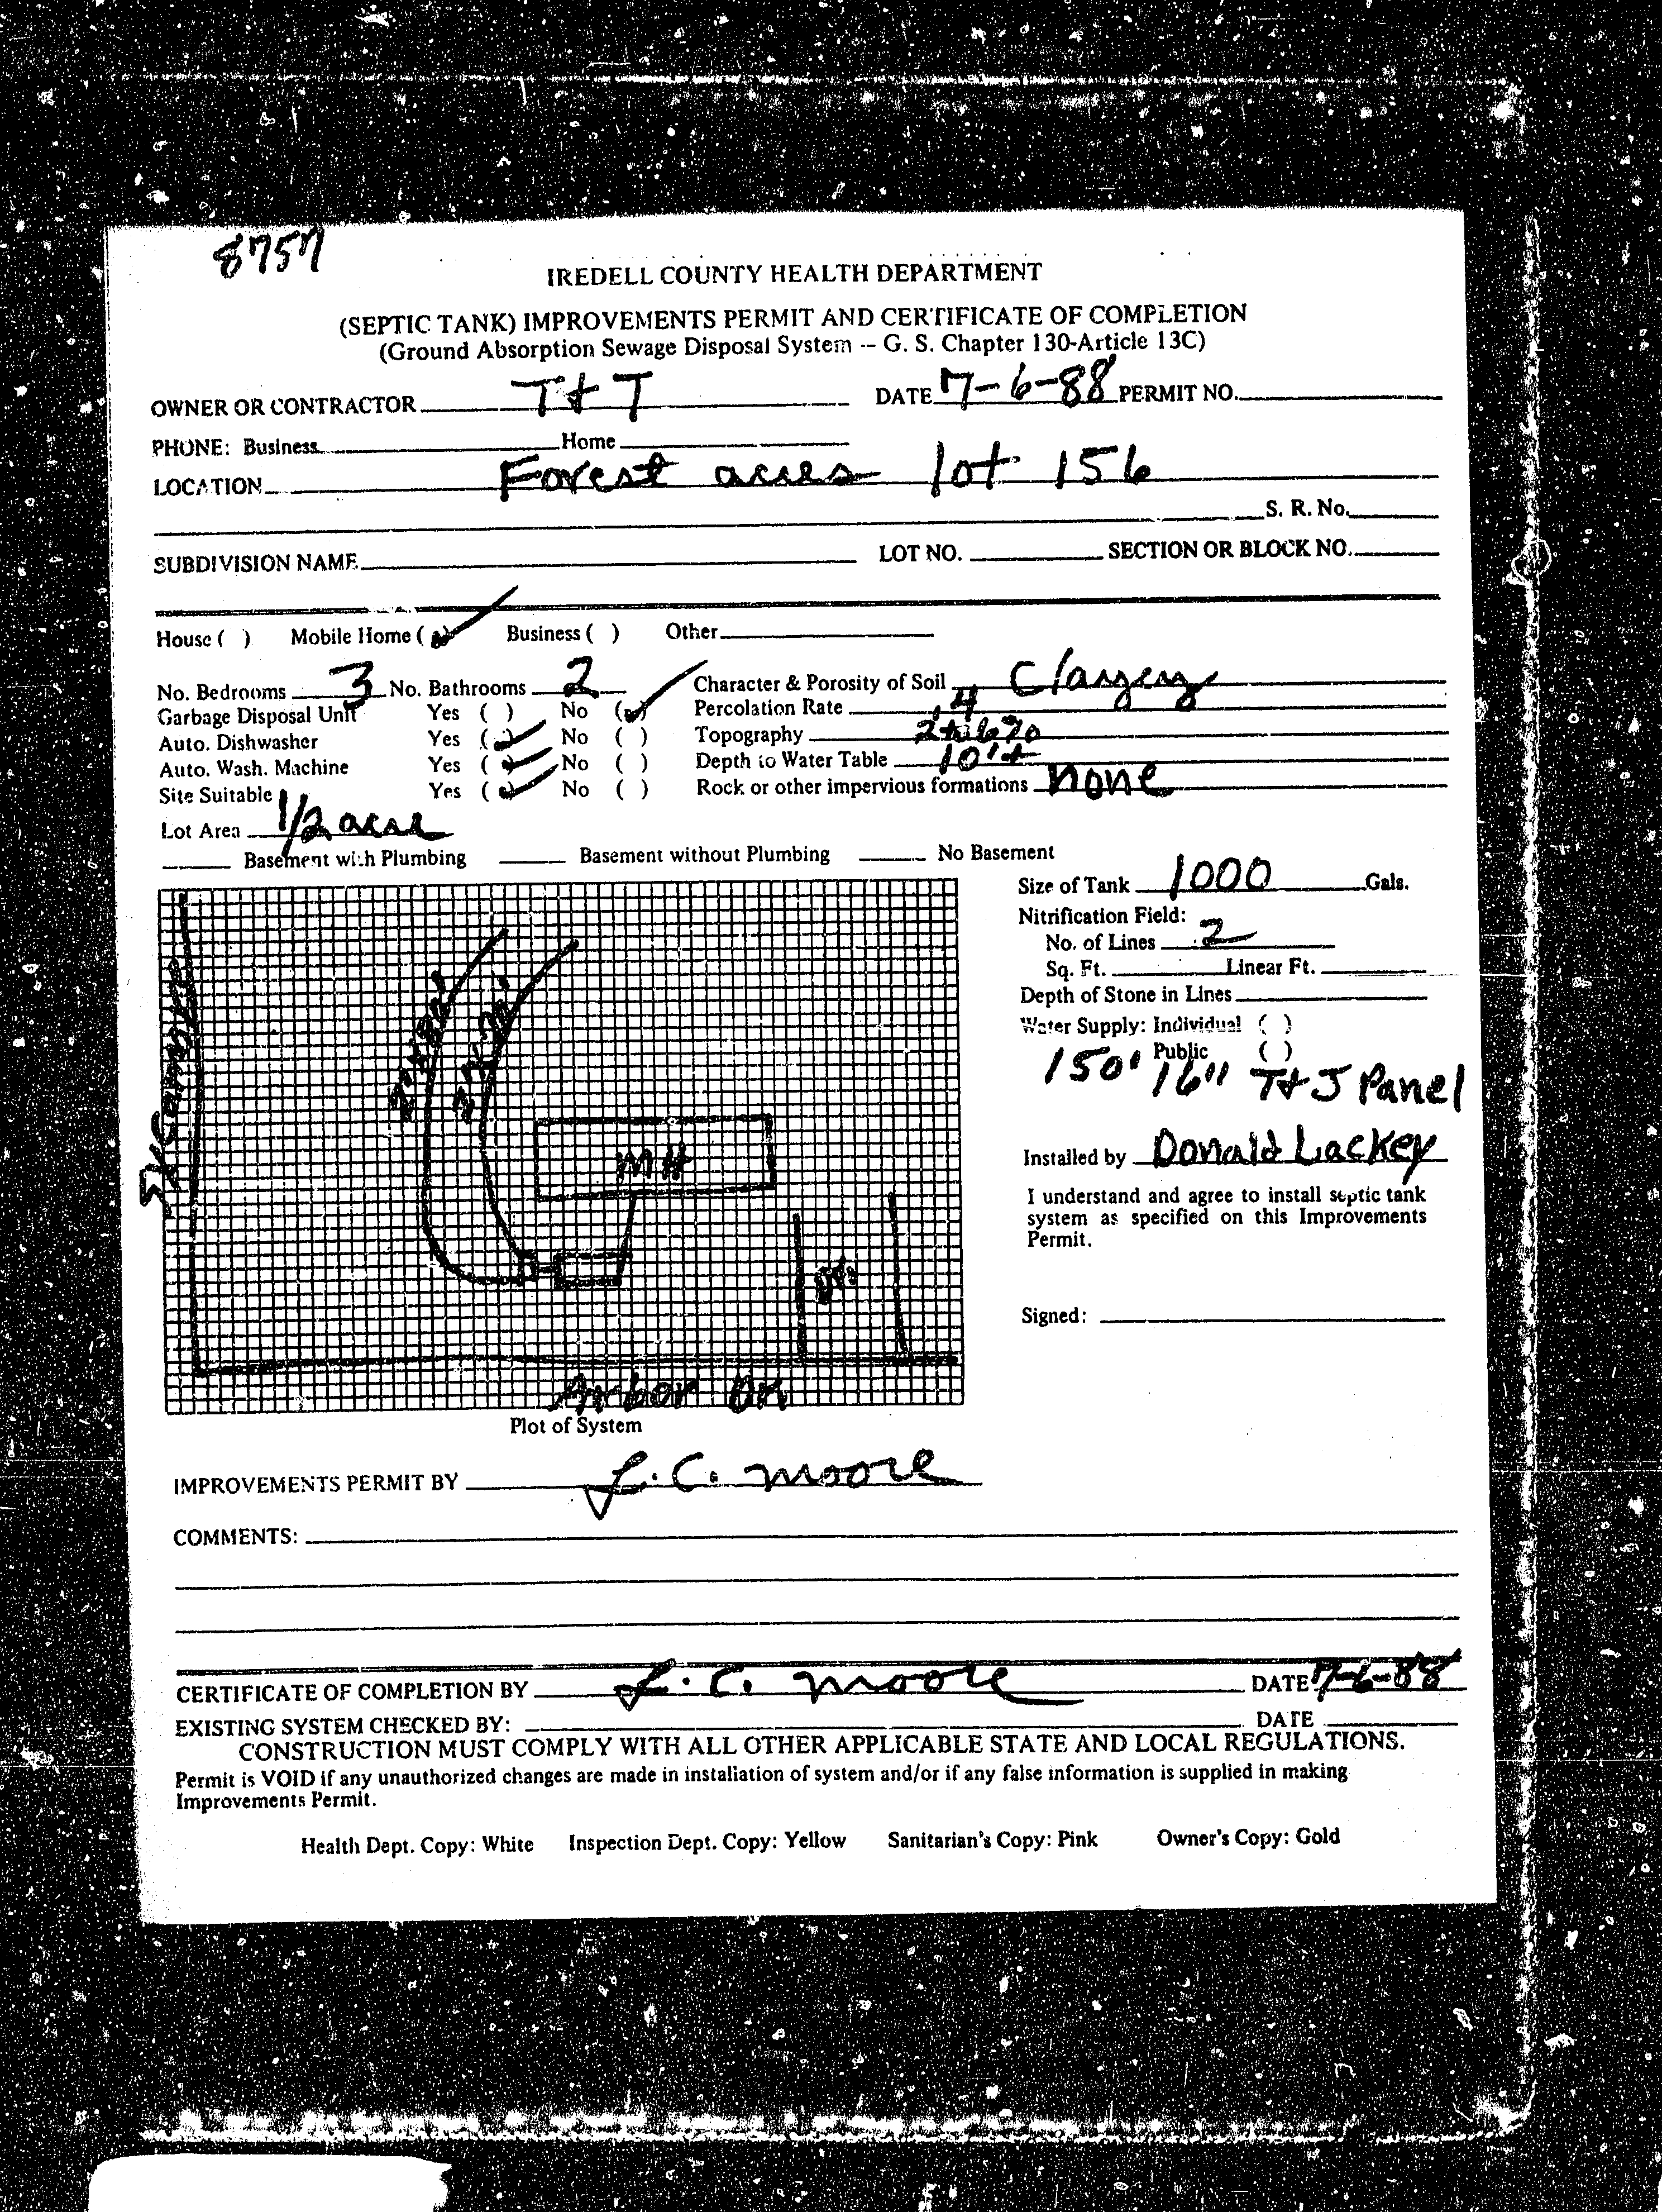 8757
IREDELL COUNTY HEALTH DEPARTMENT
(SEPTIC TANK) IMPROVEMENTS PERMIT AND CERTIFICATE OF COMPLETION
(Ground Absorption Sewage Disposal System -- G. S. Chapter 130-Article 13C)
OWNER OR CONTRACTOR T & T DATE 7-6-88 PERMIT NO.
PHONE: Business Home
LOCATION Forest acres lot 156
S. R. No.
SUBDIVISION NAME LOT NO. SECTION OR BLOCK NO.
House ( ) Mobile Home (✓) Business ( ) Other
No. Bedrooms 3 No. Bathrooms 2 Character & Porosity of Soil Clayey
Garbage Disposal Unit Yes ( ) No (✓) Percolation Rate .4
Auto. Dishwasher Yes (✓) No ( ) Topography 2 to 6%
Auto. Wash. Machine Yes (✓) No ( ) Depth to Water Table 10'+
Site Suitable Yes (✓) No ( ) Rock or other impervious formations none
Lot Area 1/2 acre
Basement with Plumbing Basement without Plumbing No Basement
Size of Tank 1000 Gals.
Nitrification Field:
No. of Lines 2
Sq. Ft. Linear Ft.
Depth of Stone in Lines
Water Supply: Individual ( )
Public ( )
150' 16" T & J Panel
Installed by Donald Lackey
I understand and agree to install septic tank
system as specified on this Improvements
Permit.
Signed:
MH
Dr.
Arbor Dr
Plot of System
IMPROVEMENTS PERMIT BY L. C. Moore
COMMENTS:
CERTIFICATE OF COMPLETION BY L. C. Moore DATE 7-6-88
EXISTING SYSTEM CHECKED BY: DATE
CONSTRUCTION MUST COMPLY WITH ALL OTHER APPLICABLE STATE AND LOCAL REGULATIONS.
Permit is VOID if any unauthorized changes are made in installation of system and/or if any false information is supplied in making
Improvements Permit.
Health Dept. Copy: White Inspection Dept. Copy: Yellow Sanitarian's Copy: Pink Owner's Copy: Gold